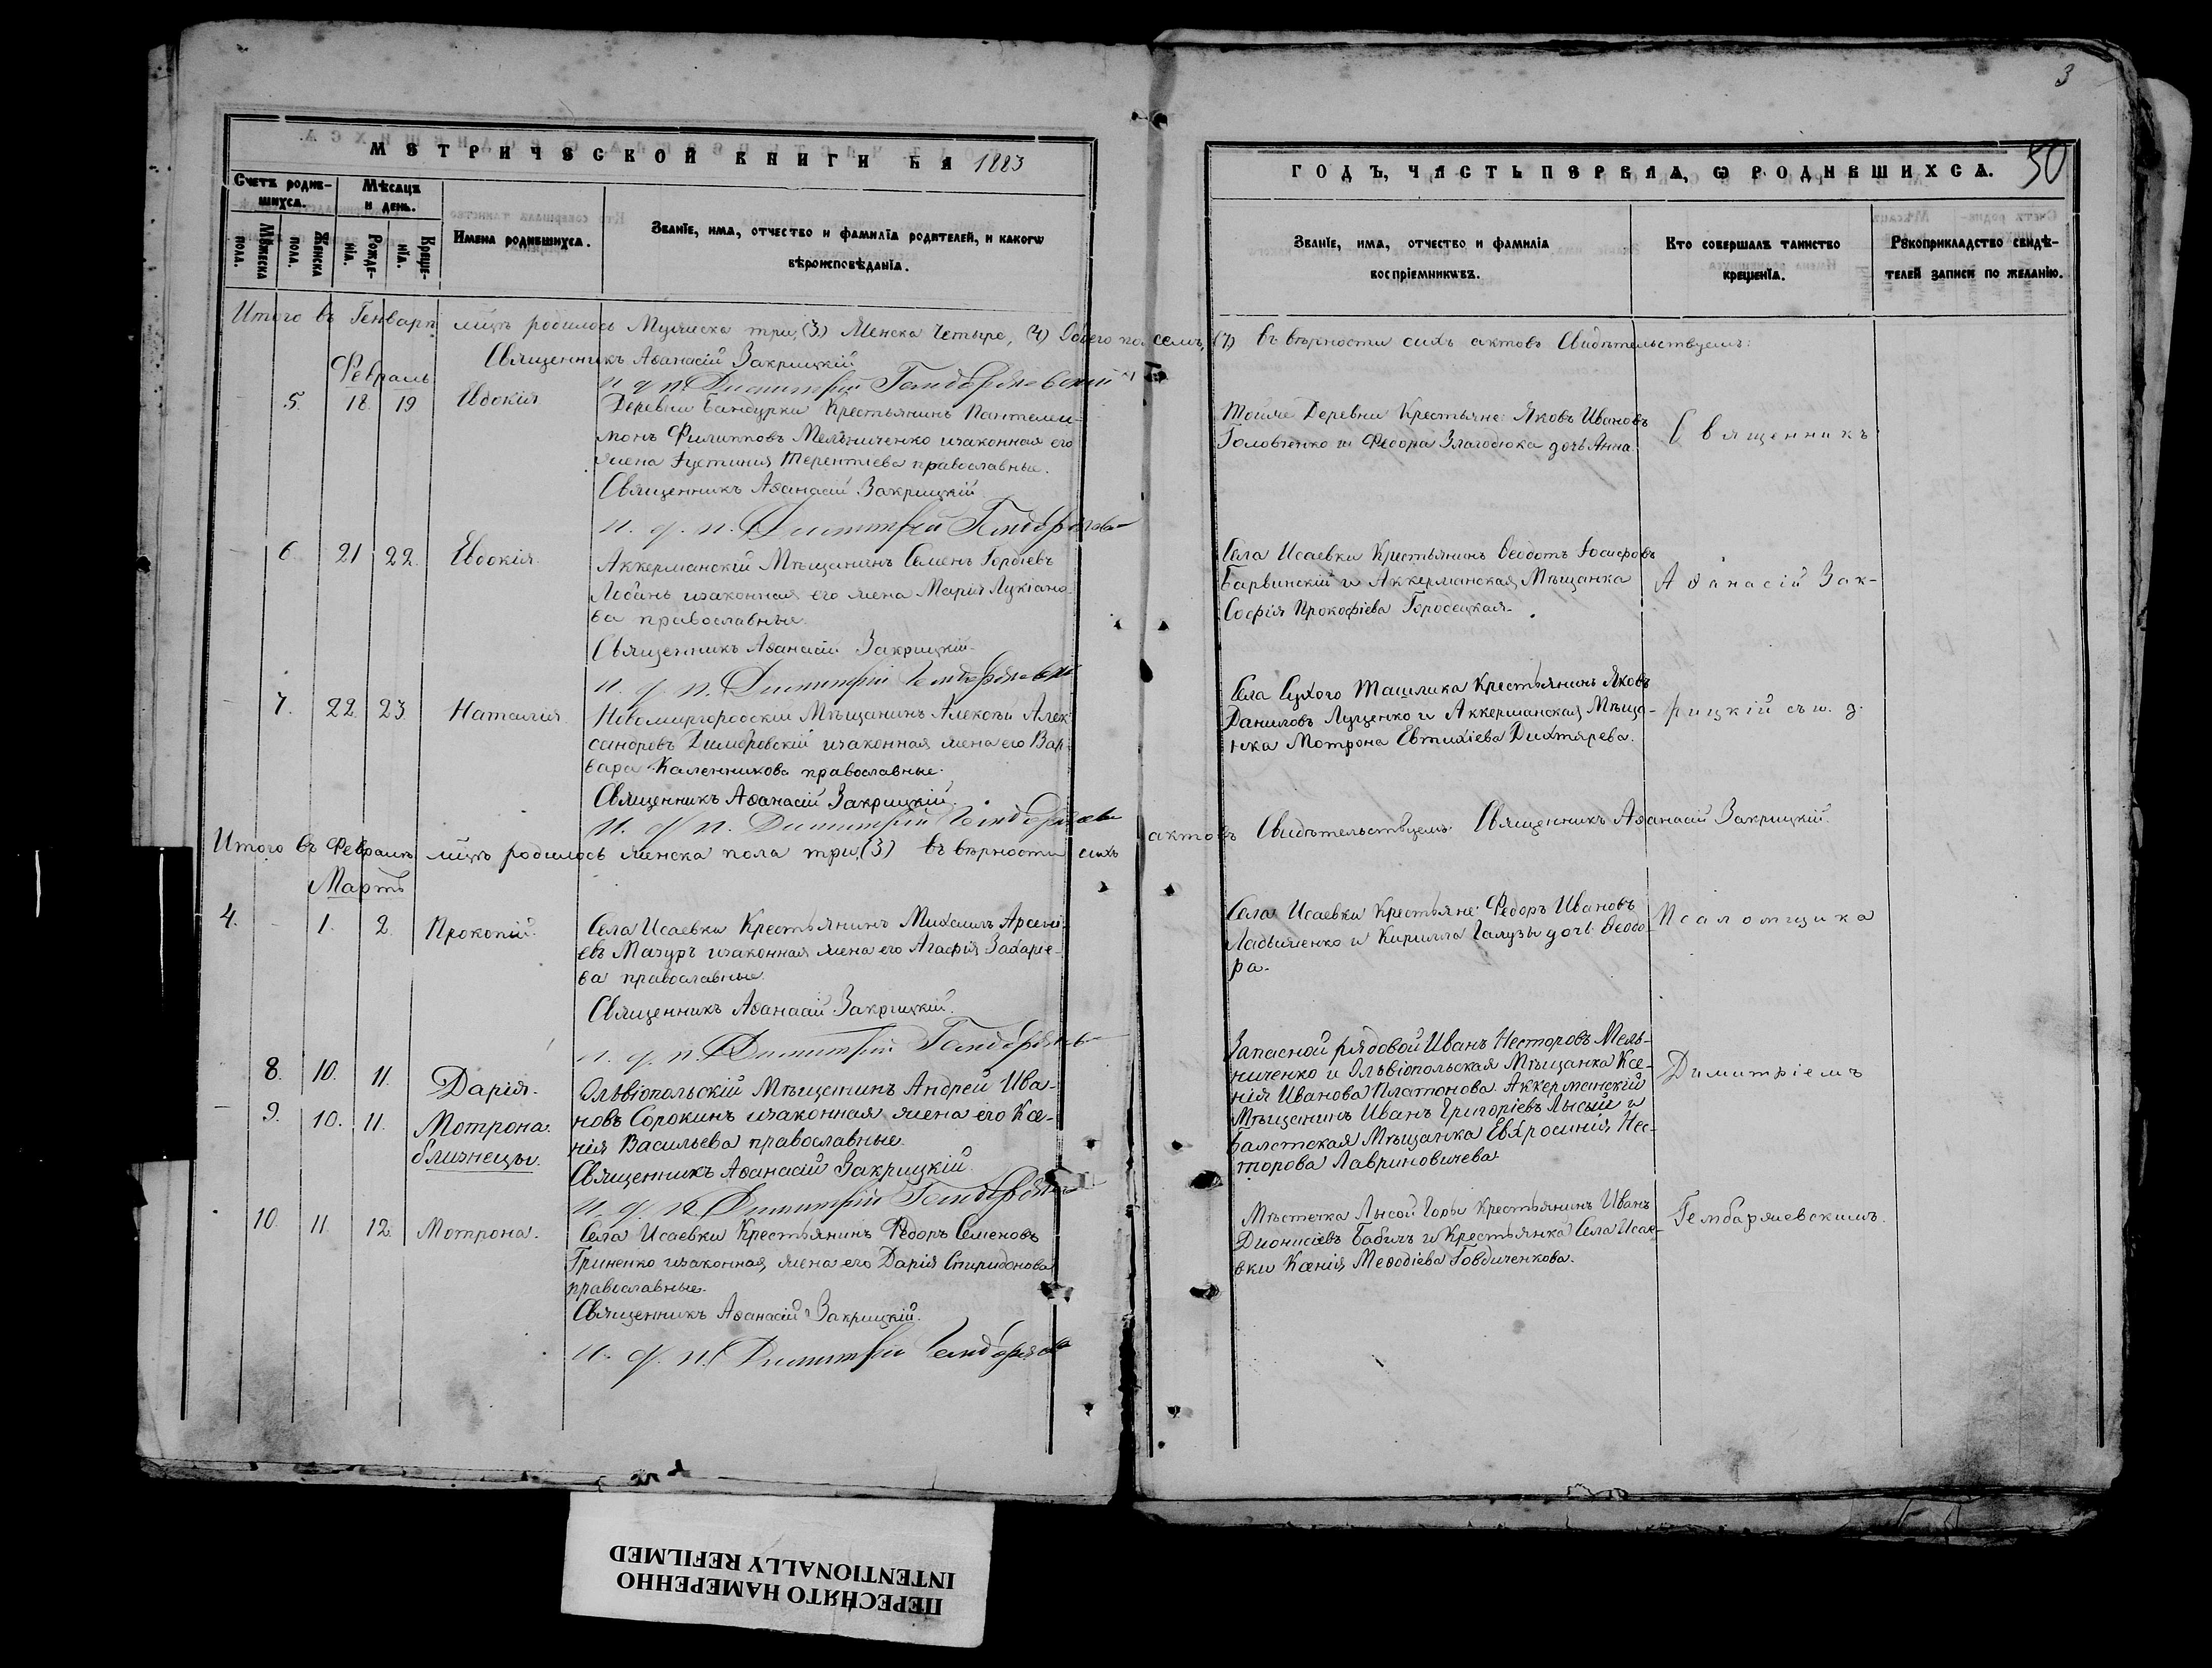 3
МЕТРИЧЕСКОЙ КНИГИ НА 1883
ГОДЪ, ЧАСТЬ ПЕРВАЯ, Ѡ РОДИВШИХСѦ. 50
Счетъ родив-
шихсѧ.
Мѣсѧцъ
и день.
Мꙋжеска
пола.
Женска
пола.
Рожде-
нїѧ.
Креще-
нїѧ.
Имена родившихсѧ.
Званїе, имѧ, отчество и фамилїѧ родителей, и какогѡ
вѣроисповѣданїѧ.
Званїе, имѧ, отчество и фамилїѧ
воспрїемникѡвъ.
Кто совершалъ таинство
крещенїѧ.
Рꙋкоприкладство свидѣ-
телей записи по желанїю.
Итого въ Генварѣ мцѣ родилось Мужеска три, (3) Женска Четыре, (4) Обоего пола семь, (7) въ вѣрности сихъ актовъ Свидѣтельствуемъ:
Священникъ Аѳанасій Закрицкій
и. д. п. Димитрій Гембаржевскій
Февраль
5. 18. 19 Евдокія
Деревни Бандурки Крестьянинъ Пантелеи-
монъ Филипповъ Мельниченко изаконная его
жена Іустинія Терентіева православные.
Священникъ Аѳанасій Закрицкій
и. д. п. Димитрій
Тойже Деревни Крестьяне: Яковъ Ивановъ
Головченко и Феодора дочь Анна.
Священникъ
6. 21 22. Евдокія.
Аккерманскій Мѣщанинъ Семенъ Гордіевъ
Лобань изаконная его жена Марія Лукіано-
ва православные.
Священникъ Аѳанасій Закрицкій.
и. д. п. Димитрій
Села Исаевки Крестьянинъ Ѳеодотъ Іосифовъ
Барвинскій и Аккерманская Мѣщанка
Софія Прокофіева Городецкая.
Аѳанасій Зак-
7. 22. 23. Наталія
Новомиргородскій Мѣщанинъ Алексѣй Алек-
сандровъ изаконная жена его Вар-
вара Каленникова православные.
Священникъ Аѳанасій Закрицкій.
и. д. п. Димитрій
Села Сухого Ташлика Крестьянинъ Яковъ
Даниловъ Луценко и Аккерманская Мѣща-
нка Мотрона Евтихіева Дихтярева.
рицкій съ и. д.
Итого въ Февралѣ мцѣ родилось женска пола три, (3) въ вѣрности сихъ актовъ Свидѣтельствуемъ: Священникъ Аѳанасій Закрицкій.
Мартъ
4. 1. 2. Прокопій.
Села Исаевки Крестьянинъ Михаилъ Арсені-
евъ Мазуръ изаконная жена его Агафія Захаріе-
ва православные.
Священникъ Аѳанасій Закрицкій.
и. д. п. Димитрій
Села Исаевки Крестьяне: Федоръ Ивановъ
и Кирилла Галузы дочь Ѳеодо-
ра.
Псаломщика
8. 10. 11. Дарія.
9. 10. 11. Мотрона.
близнецы.
Ольвіопольскій Мѣщанинъ Андрей Ива-
новъ Сорокинъ изаконная жена его Ксе-
нія Васильева православные.
Священникъ Аѳанасій Закрицкій.
и. д. п. Димитрій
Запасной рядовой Иванъ Несторовъ Мель-
ниченко и Ольвіопольская Мѣщанка Ксе-
нія Иванова Платонова. Аккерманскій
Мѣщанинъ Иванъ Григоріевъ Лысый и
Балтская Мѣщанка Евфросинія Нес-
торова Лавриновичева.
Димитріемъ
10. 11. 12. Мотрона.
Села Исаевки Крестьянинъ Федоръ Семеновъ
Гриненко изаконная жена его Дарія Спиридонова
православные.
Священникъ Аѳанасій Закрицкій.
и. д. п. Димитрій
Мѣстечка Лысой Горы Крестьянинъ Иванъ
Діонисіевъ Бабичъ и Крестьянка Села Исае-
вки Ксенія Меѳодіева Говдиченкова.
Гембаржевскимъ.
ПЕРЕСНЯТО НАМЕРЕННО
INTENTIONALLY REFILMED